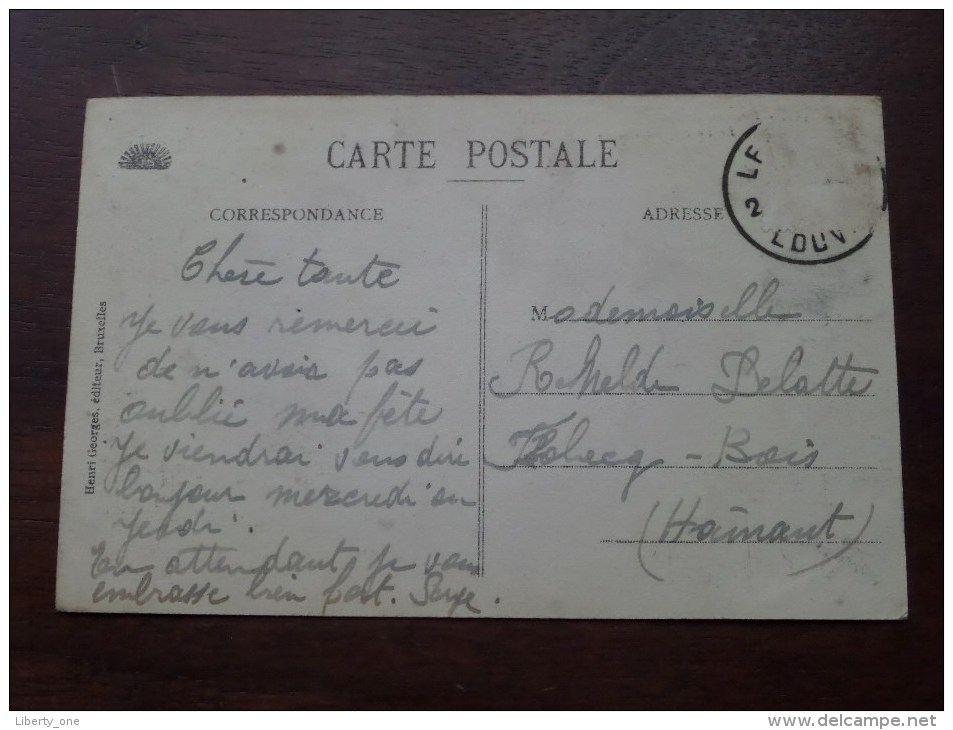 CARTE POSTALE
CORRESPONDANCE
ADRESSE
LOUV
2
Chère tante
Je vous remercie
de n'avoir pas
oublié ma fête
Je viendrai vous dire
bonjour mercredi ou
jeudi.
En attendant je vous
embrasse bien fort. Serge.
Mademoiselle
Delatte
Flobecq - Bois
(Hainaut)
Henri Georges, éditeur, Bruxelles
Liberty_one
www.delcampe.net